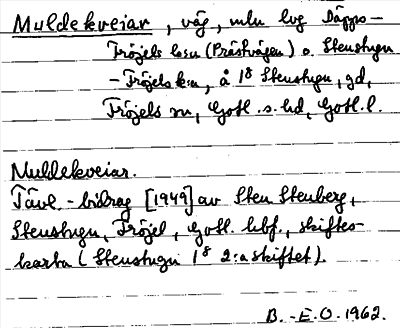 Muldekveiar, väg, mln lvg Däpps-
Fröjels lssn (Prästvägen) o. Stenstugu
- Fröjels k:a, å 1⁸ Stenstugu, gd,
Fröjels sn, Gotl. s. hd, Gotl. l.
Muldekveiar.
Tävl.-bidrag [1949] av Sten Stenberg,
Stenstugu, Fröjel, Gotl. hbf., skiftes-
karta (Stenstugu 1⁸ 2:a skiftet).
B.-E.O. 1962.